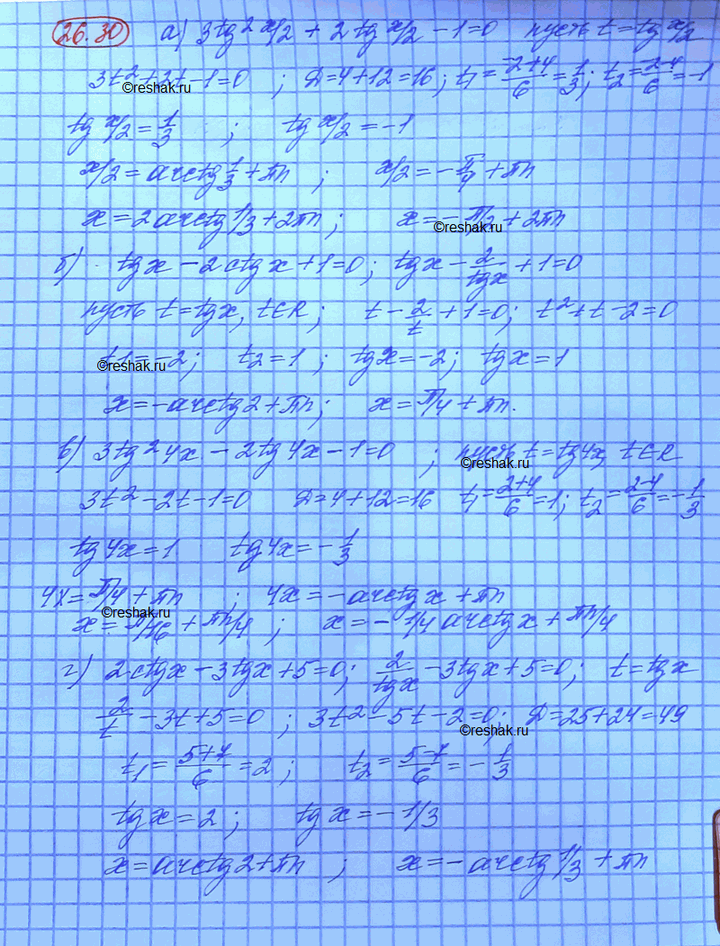 26.30 а) 3tg² x/2 + 2 tg x/2 - 1 = 0 пусть t = tg x/2
3t² + 2t - 1 = 0 ; D = 4 + 12 = 16 ; t₁ = (-2+4)/6 = 1/3 ; t₂ = (-2-4)/6 = -1
©reshak.ru
tg x/2 = 1/3 ; tg x/2 = -1
x/2 = arctg 1/3 + πn ; x/2 = -π/4 + πn
x = 2 arctg 1/3 + 2πn ; x = -π/2 + 2πn
©reshak.ru
б) tgx - 2ctgx + 1 = 0 ; tgx - 2/tgx + 1 = 0
пусть t = tgx, t∈R ; t - 2/t + 1 = 0 ; t² + t - 2 = 0
t1 = -2 ; t2 = 1 ; tgx = -2 ; tgx = 1
©reshak.ru
x = -arctg2 + πn ; x = π/4 + πn.
в) 3tg²4x - 2tg4x - 1 = 0 ; пусть t = tg4x, t∈R
©reshak.ru
3t² - 2t - 1 = 0 D = 4 + 12 = 16 t₁ = (2+4)/6 = 1 ; t₂ = (2-4)/6 = -1/3
tg4x = 1 tg4x = -1/3
4x = π/4 + πn ; 4x = -arctgx + πn
©reshak.ru
x = π/16 + πn/4 ; x = -1/4 arctgx + πn/4
г) 2ctgx - 3tgx + 5 = 0 ; 2/tgx - 3tgx + 5 = 0 ; t = tgx
2/t - 3t + 5 = 0 ; 3t² - 5t - 2 = 0 ; D = 25 + 24 = 49
©reshak.ru
t₁ = (5+7)/6 = 2 ; t₂ = (5-7)/6 = -1/3
tgx = 2 ; tgx = -1/3
x = arctg2 + πn ; x = -arctg 1/3 + πn